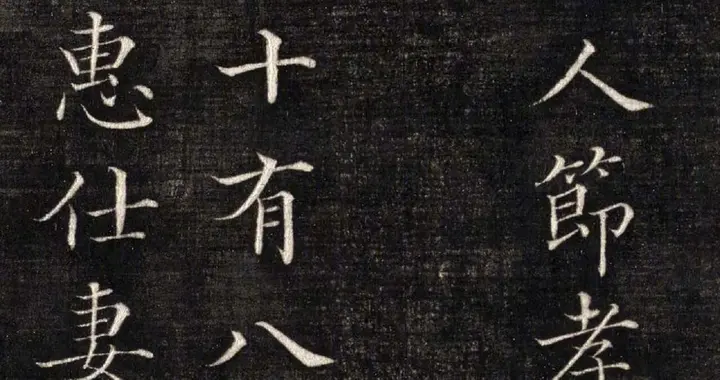 人節孝
十有八
惠仕妻